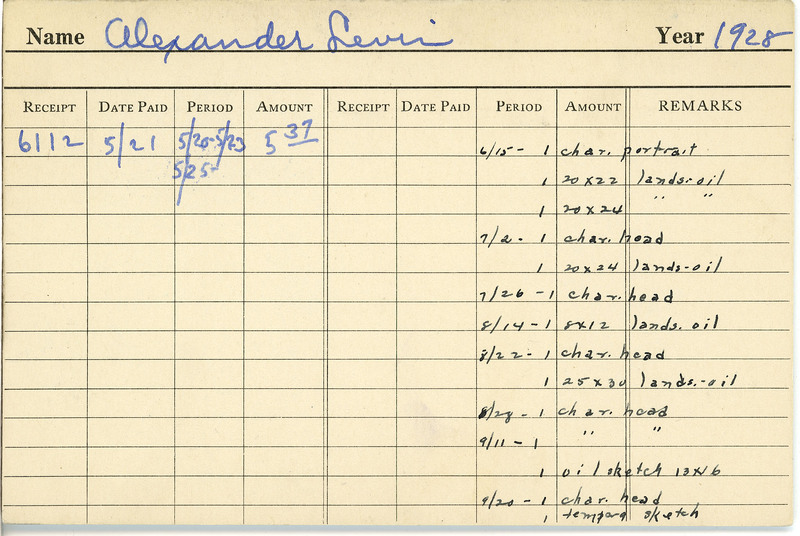 Name Alexander Levin Year 1928
RECEIPT DATE PAID PERIOD AMOUNT RECEIPT DATE PAID PERIOD AMOUNT REMARKS
6112 5/21 5/20-5/23 5 37
5/25-
6/15- 1 char. portrait
1 20x22 lands-oil
1 20x24 " "
7/2- 1 char. head
1 20x24 lands-oil
7/26-1 char. head
8/14-1 8x12 lands. oil
8/22-1 char. head
1 25x30 lands.-oil
8/28-1 char. head
9/11-1 " "
1 oil sketch 13x16
9/20-1 char. head
1 tempera sketch